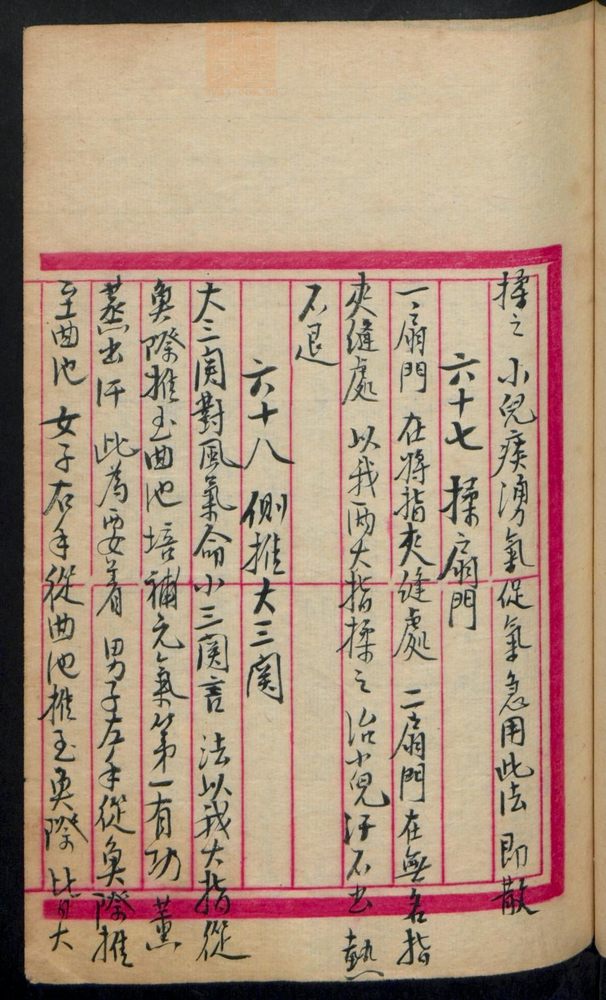 揉之 小兒痰湧氣促氣急用此法 即散
六十七 揉扇門
一扇門 在將指夾縫處 二扇門在無名指
夾縫處 以我兩大指揉之 治小兒汗不出 熱
不退
六十八 側推大三関
大三関對風氣命小三関言 法以我大指從
魚際推至曲池 培補元氣第一有功 薰
蒸出汗 此為要着 男子左手從魚際推
至曲池 女子右手從曲池推至魚際 皆大